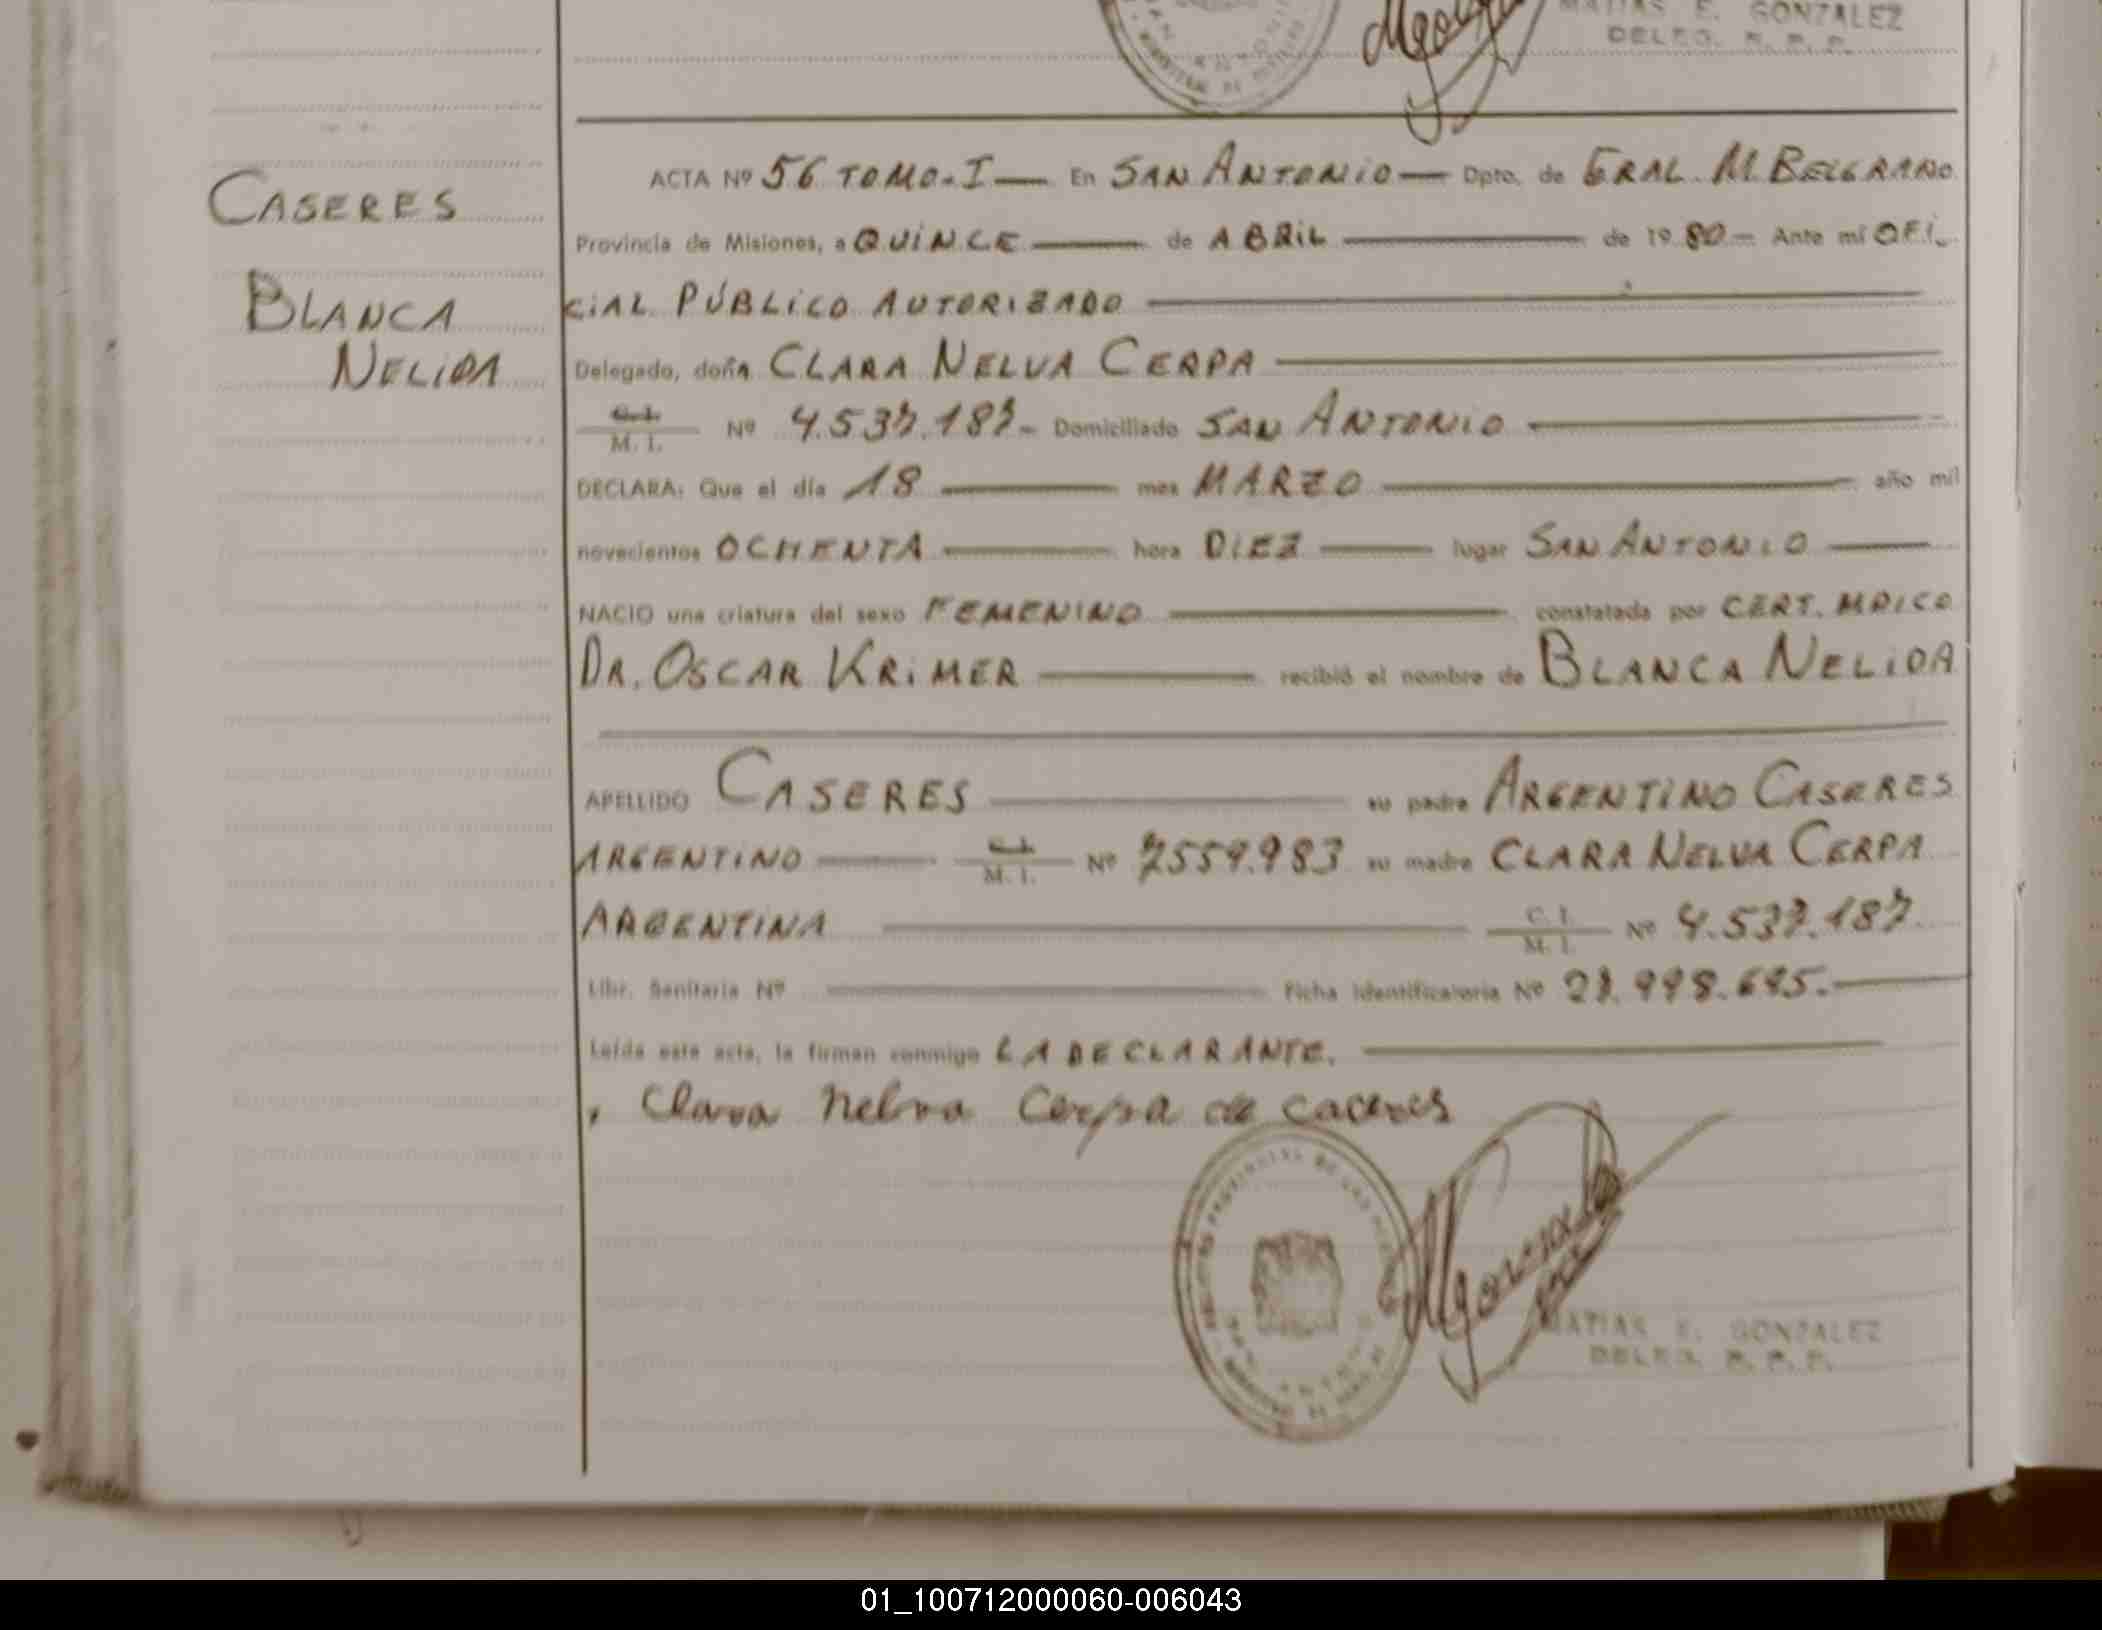 MATIAS E. GONZALEZ
DELEG. R. P. P.
ACTA Nº 56 TOMO-I — En SAN ANTONIO — Dpto. de GRAL. M. BELGRANO
Provincia de Misiones, a QUINCE — de ABRIL — de 1980 — Ante mí OFI-
CIAL PÚBLICO AUTORIZADO
Delegado, doña CLARA NELVA CERPA
C. I.
M. I. Nº 4.537.187- Domiciliado SAN ANTONIO
DECLARA: Que el día 18 — mes MARZO — año mil
novecientos OCHENTA — hora DIEZ — lugar SAN ANTONIO —
NACIO una criatura del sexo FEMENINO — constatada por CERT. MDICO
DR. OSCAR KRIMER — recibió el nombre de BLANCA NELIDA
APELLIDO CASERES — su padre ARGENTINO CASERES
ARGENTINO — C. I. M. I. Nº 7559.983 su madre CLARA NELVA CERPA
ARGENTINA — C. I. M. I. Nº 4.537.187.
Libr. Sanitaria Nº — Ficha Identificatoria Nº
Leída este acta, la firman conmigo LA DECLARANTE.
Clara Nelva Cerpa de caceres
MATIAS E. GONZALEZ
DELEG. R. P. P.
CASERES
BLANCA
NELIDA
01_100712000060-006043